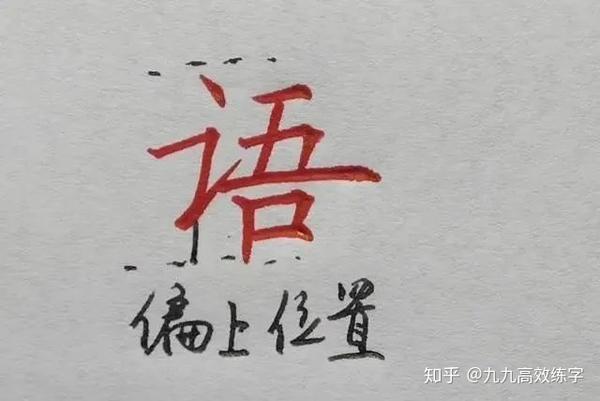 语
偏上位置
知乎 @九九高效练字